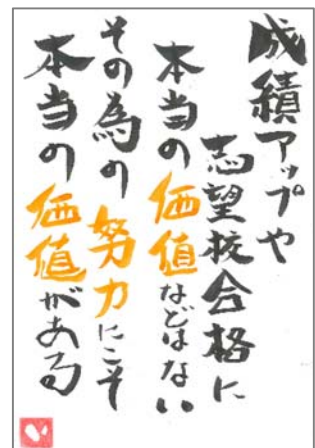 成績アップや
志望校合格に
本当の価値などはない
その為の努力にこそ
本当の価値がある